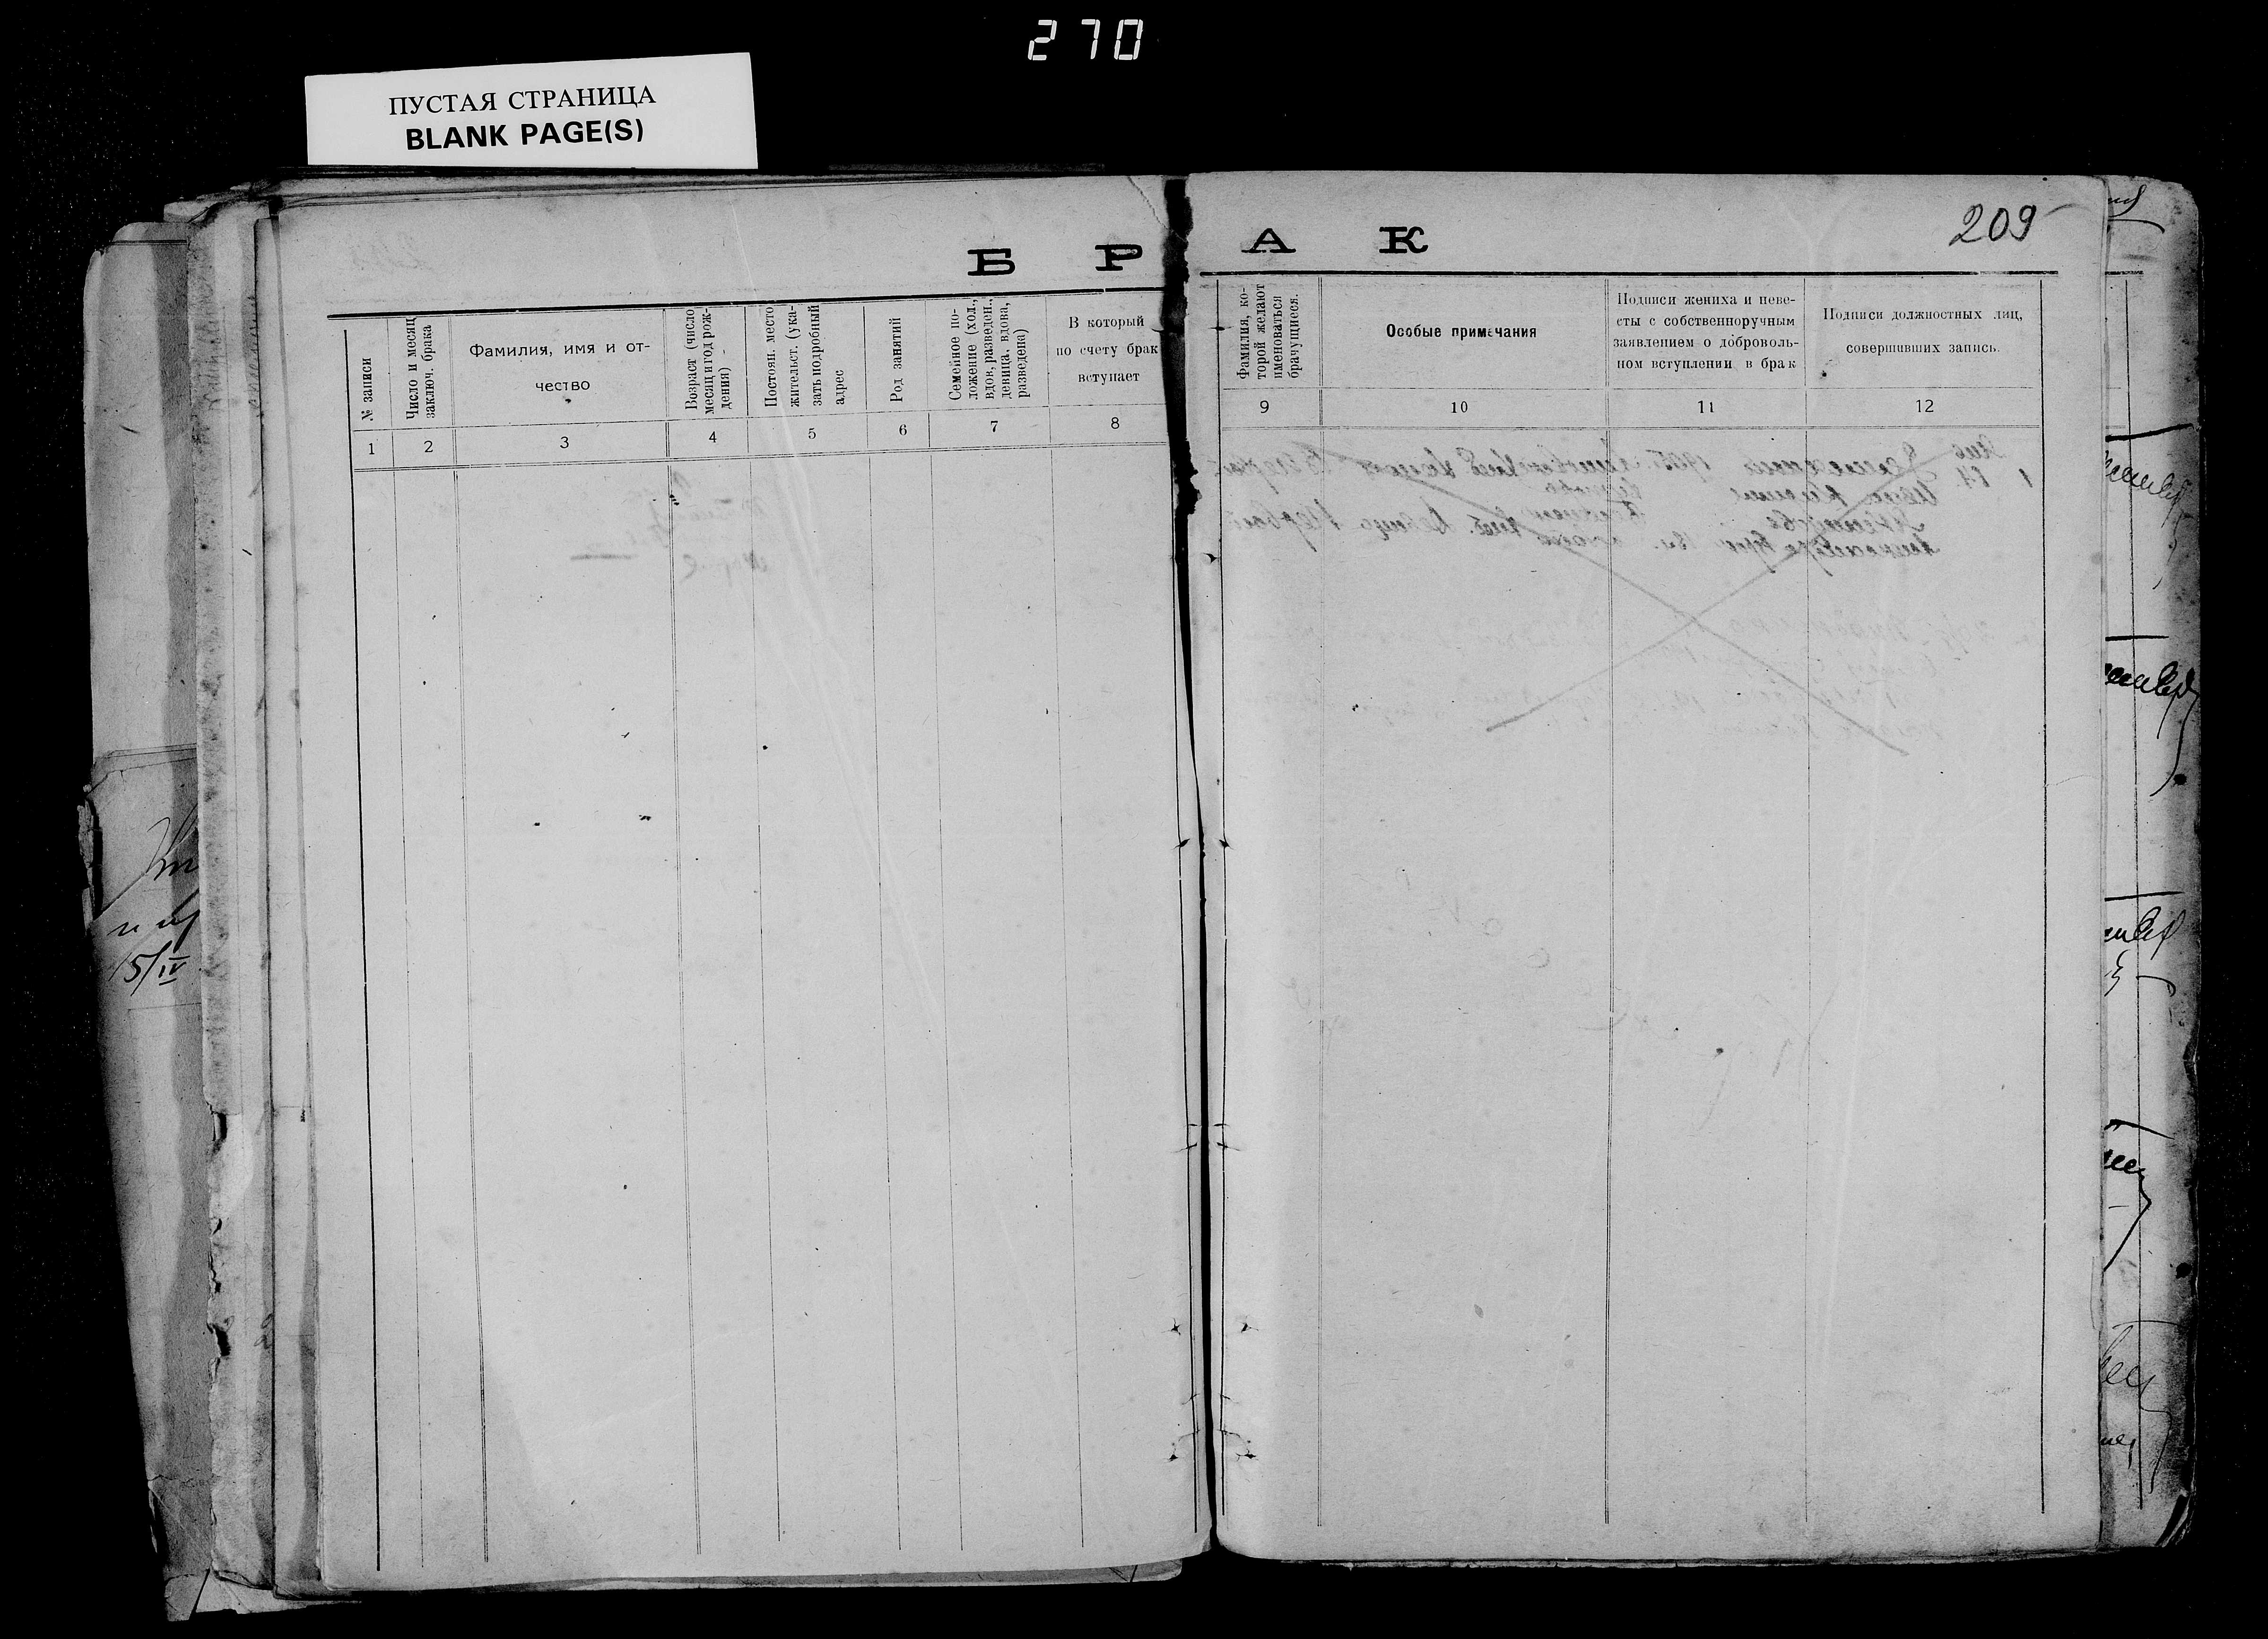 270
ПУСТАЯ СТРАНИЦА
BLANK PAGE(S)
209
Б Р А К
№ записи
Число и месяц
заключ. брака
Фамилия, имя и от-
чество
Возраст (число,
месяц и год рож-
дения)
Постоян. место
жительст. (ука-
зать подробный
адрес
Род занятий
Семейное по-
ложение (хол.,
вдов, разведен.,
девица, вдова,
разведена)
В который
по счету брак
вступает
1 2 3 4 5 6 7 8
Фамилия, ко-
торой желают
именоваться
брачущиеся.
Особые примечания
Подписи жениха и неве-
сты с собственноручным
заявлением о доброволь-
ном вступлении в брак
Подписи должностных лиц,
совершивших запись.
9 10 11 12
5/IV